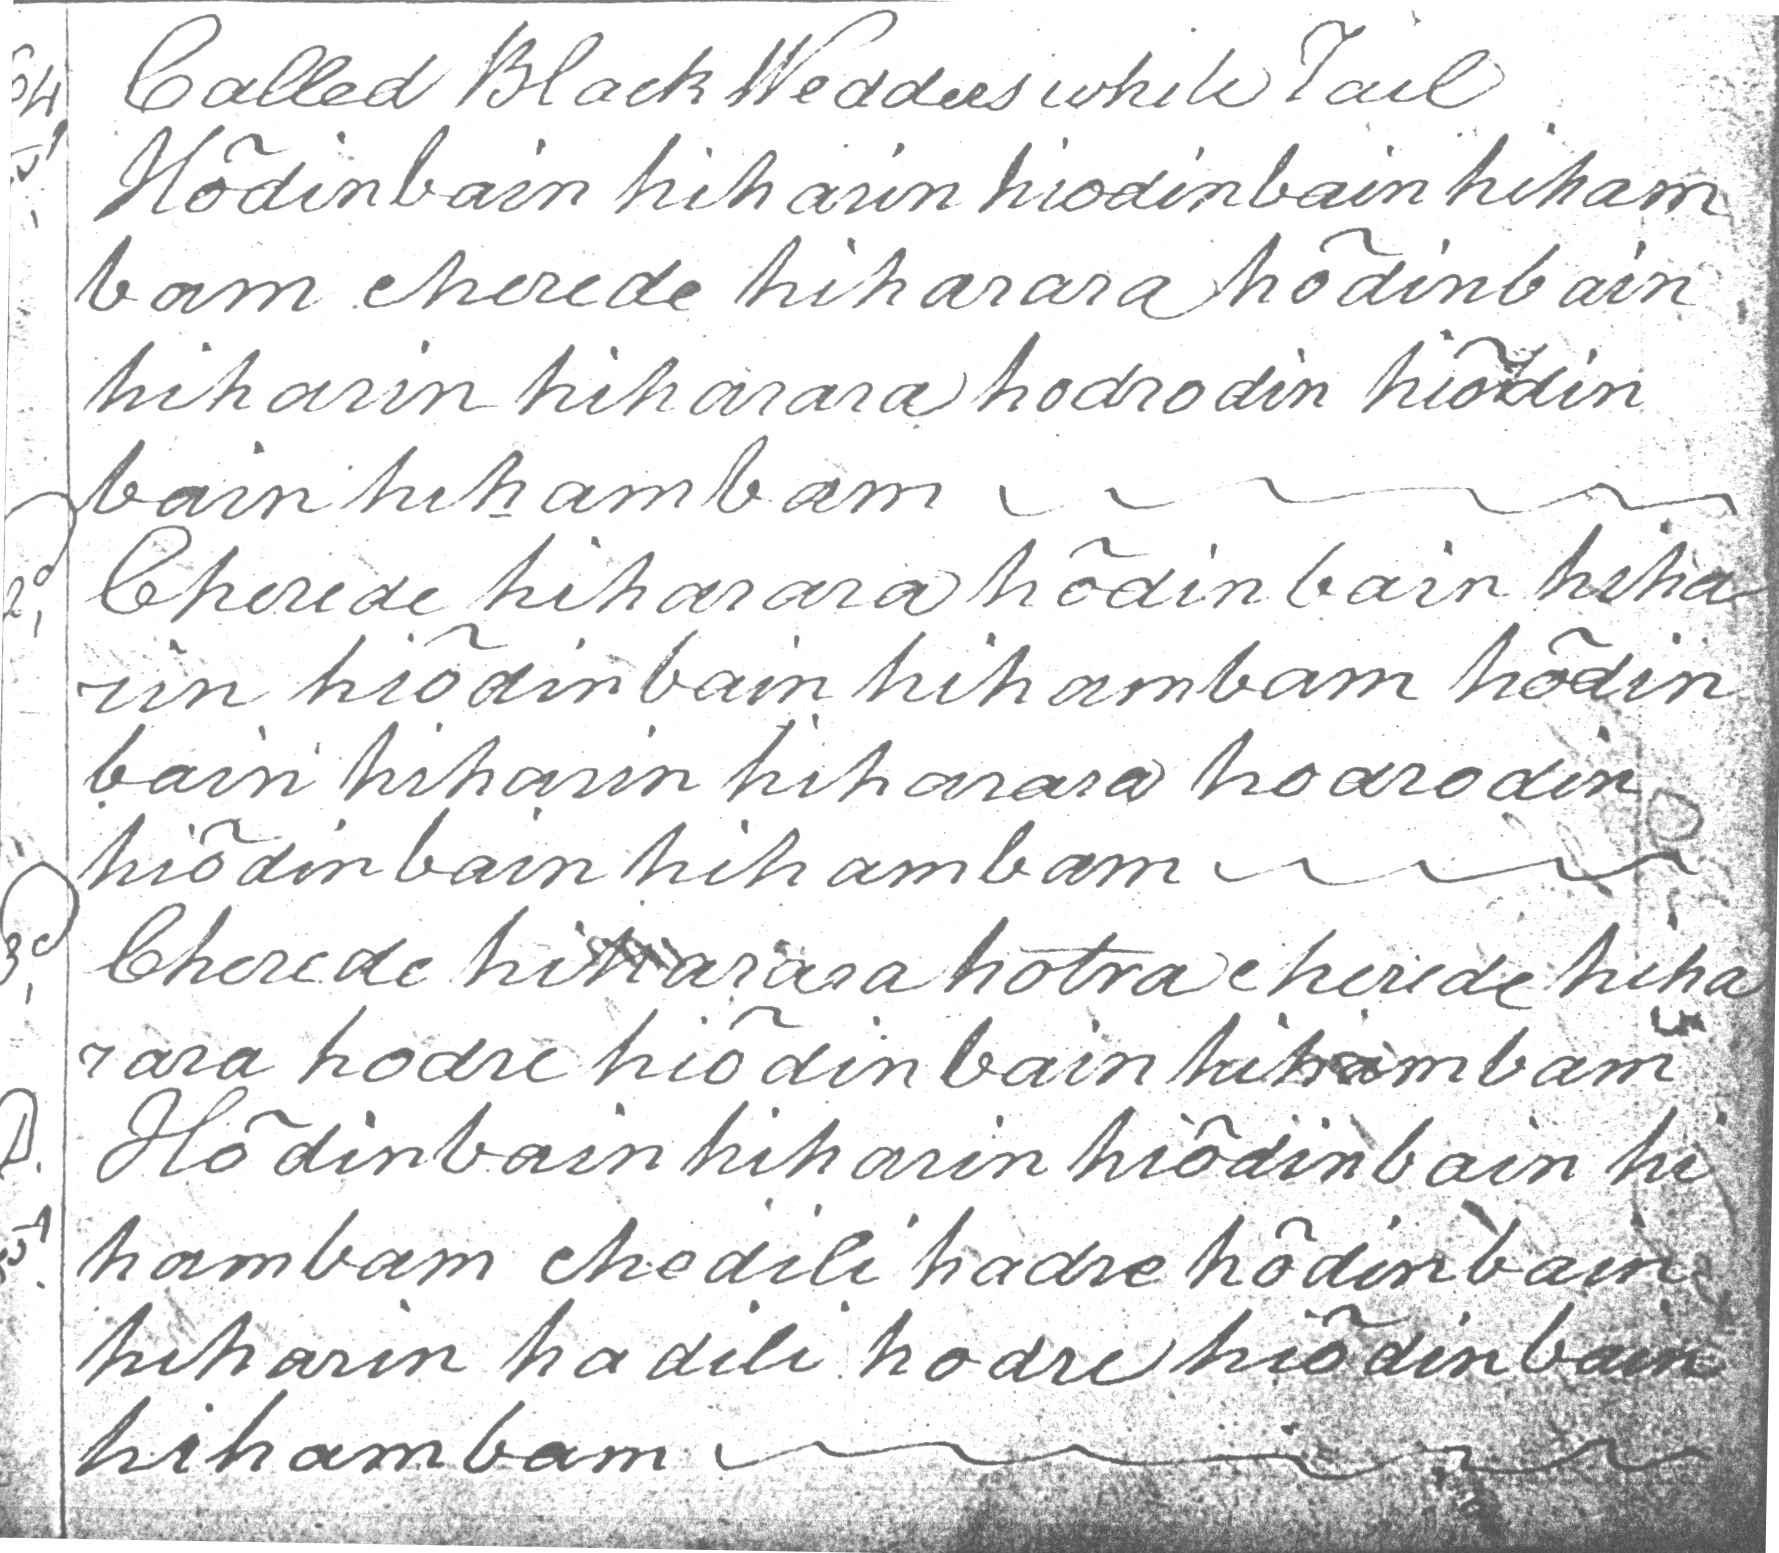 54 Called Black Wedders while Tail
1st Hõdinbain hiharin hiodinbain hiham
bam cherede hiharara hõdinbain
hiharin hiharara hodrodin hiõdin
bain hihambam
2d Cherede hiharara hõdinbain hiha
rin hiõdinbain hihambam hõdin
bain hiharin hiharara hodrodin
hiõdinbain hihambam
3d Cherede hiharara hotra cherede hiha
rara hodre hiõdinbain hihambam
D. 1st Hõdinbain hiharin hiõdinbain hi
hambam chedili hadre hõdinbain
hiharin hadili hodre hiõdinbain
hihambam